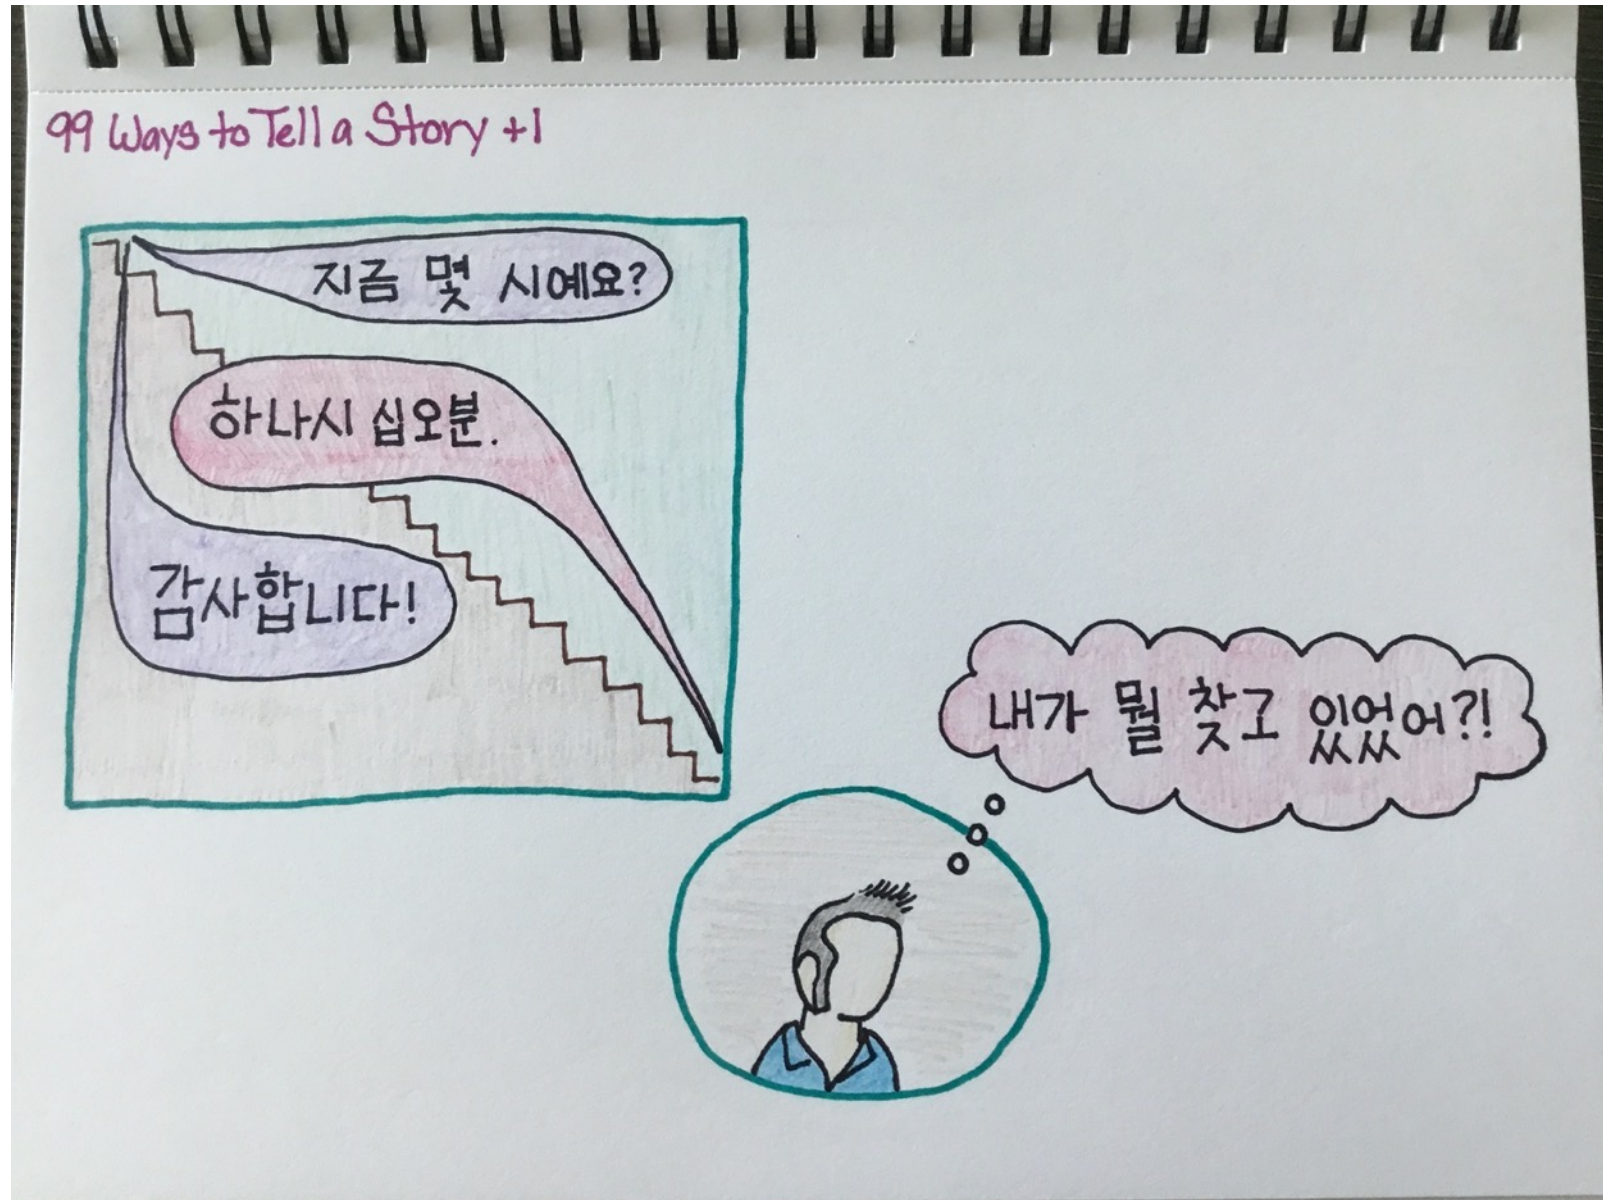 99 Ways to Tell a Story +1
지금 몇 시예요?
하나시 십오분.
감사합니다!
내가 뭘 찾고 있었어?!